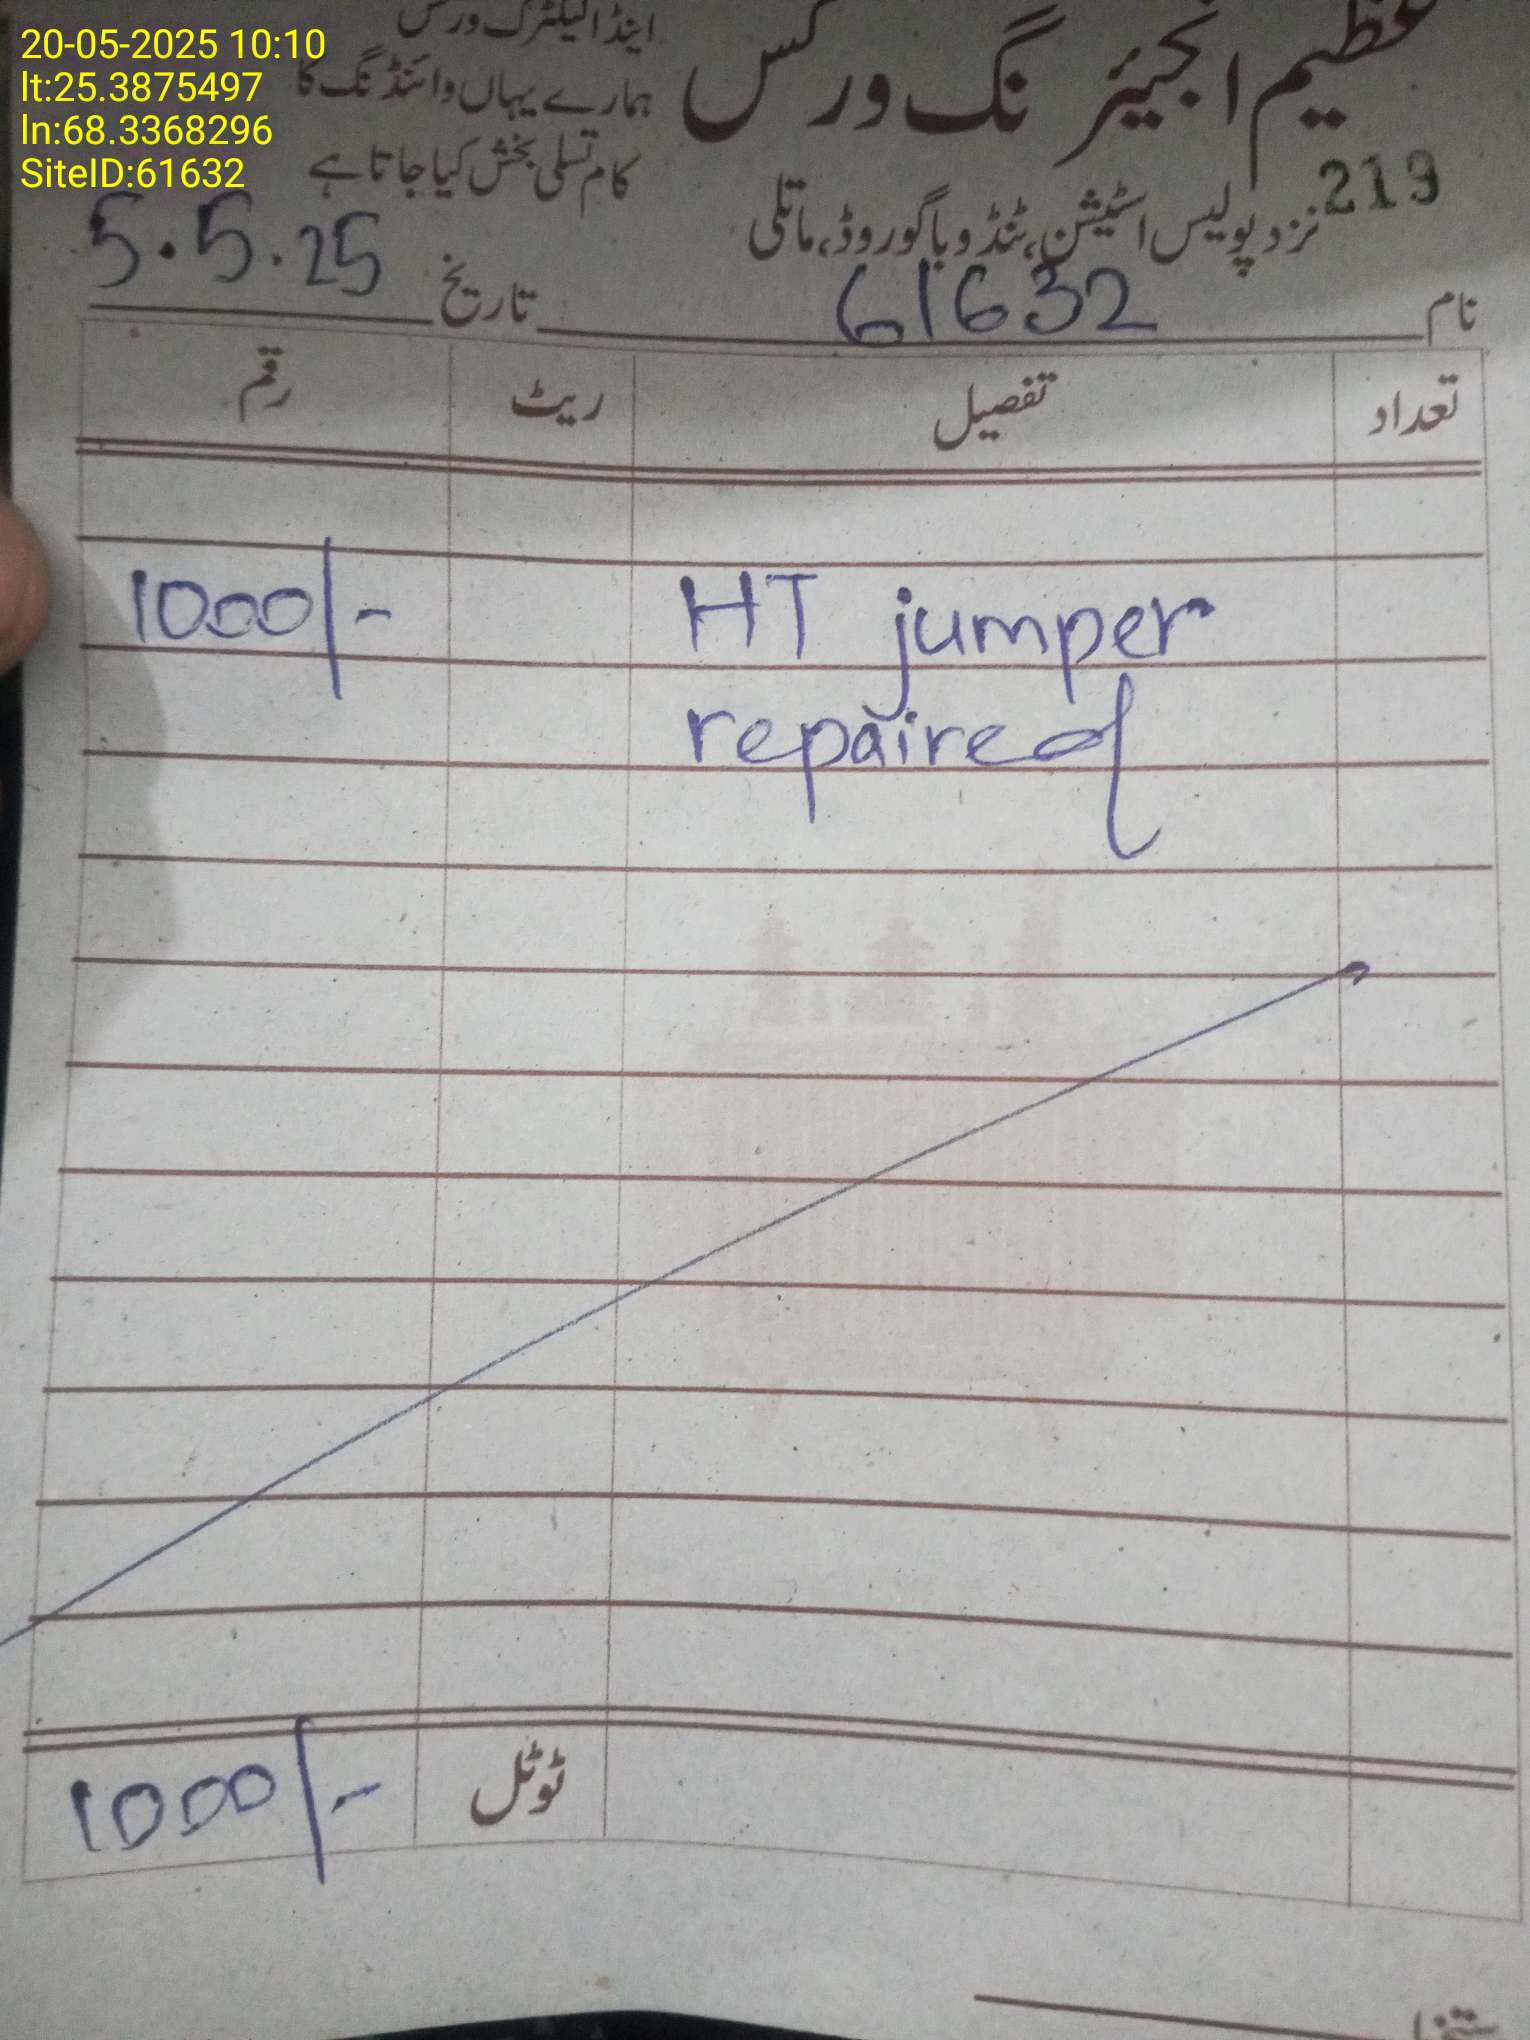 20-05-2025 10:10
lt:25.3875497
ln:68.3368296
SiteID:61632
عظیم انجینئرنگ ورکس
اینڈ الیکٹرک ورکس
ہمارے یہاں وائنڈنگ کا
کام تسلی بخش کیا جاتا ہے
219
نزد پولیس اسٹیشن، ٹنڈو باگو روڈ، ماتلی
نام 61632 تاریخ 5.5.25
تعداد تفصیل ریٹ رقم
HT jumper 1000/-
repaired
ٹوٹل 1000/-